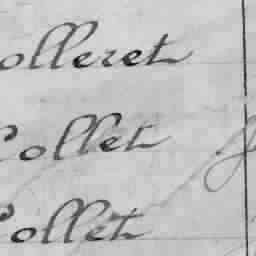 olleret
Collet
Collet